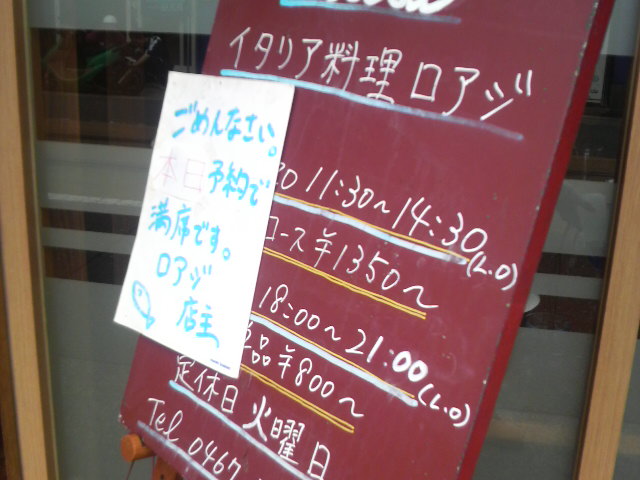 イタリア料理 ロアジ
ごめんなさい。
本日予約で
満席です。
ロアジ
店主
11:30~14:30(L.O)
コース ¥1350~
18:00~21:00(L.O)
品 ¥800~
定休日 火曜日
Tel 0467